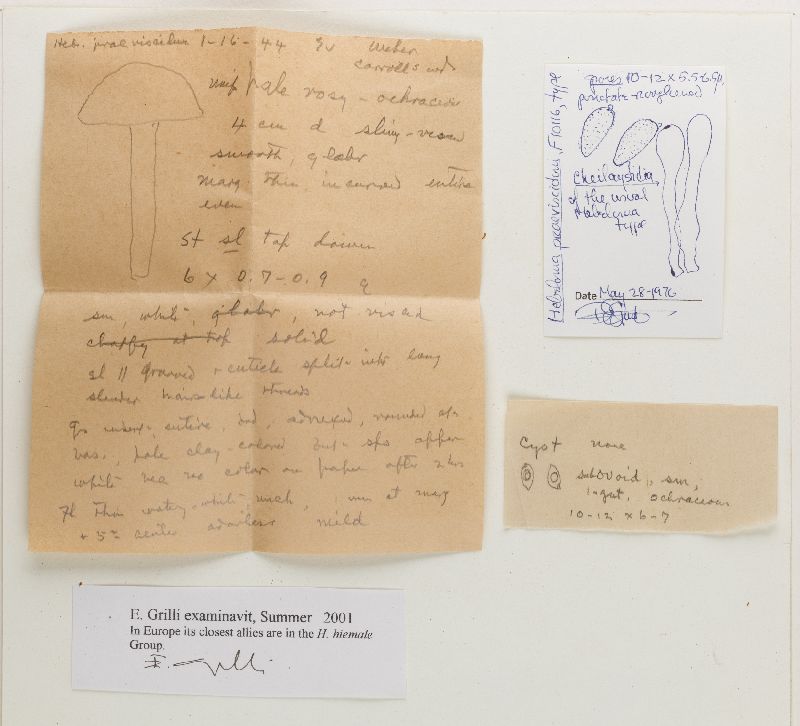 Heb. praeviscidum 1-16-44 Weber
Carroll's wds
pale rosy-ochraceous
4 cm d slimy-viscid
smooth, glabr
marg thin, incurved entire
even
St sl tap down
6 x 0.7-0.9
sm, white, glabr, not viscid
chaffy at top solid
sl || grooved cuticle splits into long
slender hair-like threads
adnexed, rounded
pale clay-colored but sps
white no color on paper after 2
Fl thin watery-white, at marg
odorless mild
Hebeloma praeviscidum, F10116, type
spores 10-12 x 5.5-6.5µ
punctate-roughened
Cheilocystidia
of the usual
Hebeloma
type
Date May 28-1976
Cyst none
subovoid, sm,
1-gut, ochraceous
10-12 x 6-7
E. Grilli examinavit, Summer 2001
In Europe its closest allies are in the H. hiemale
Group.
E. Grilli